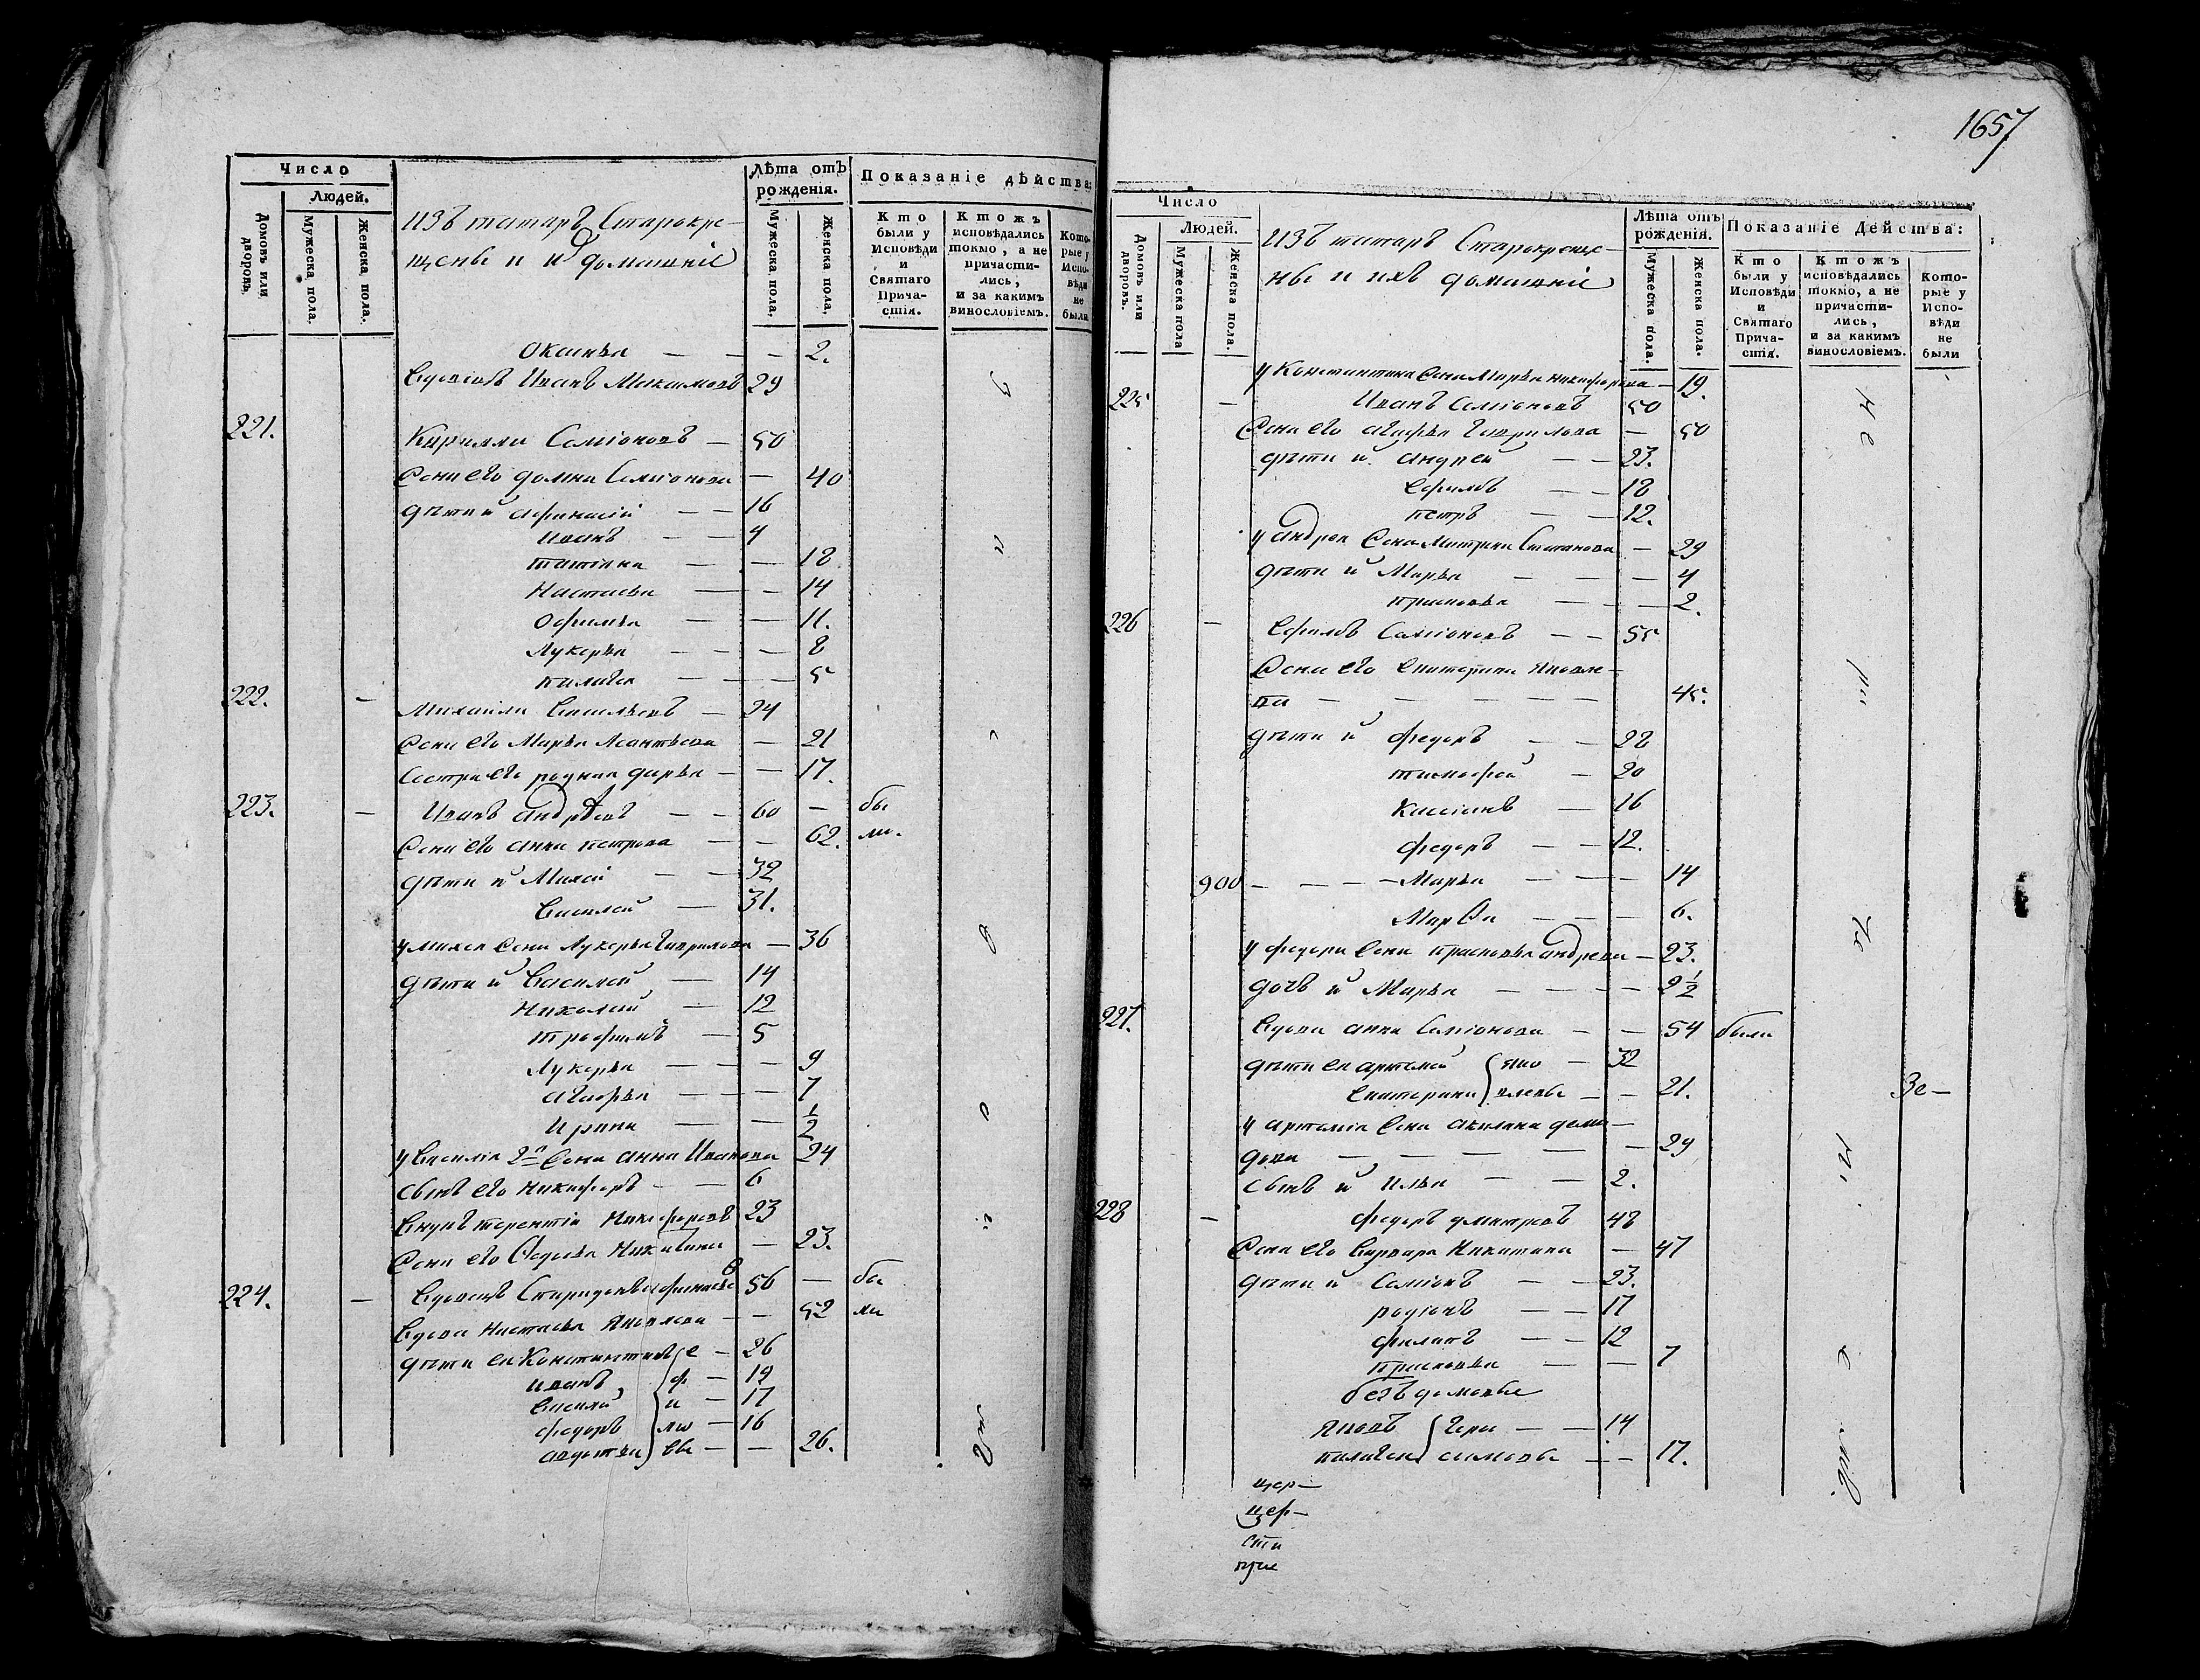 Число
Людей.
Домовъ или дворовъ.
Мужеска пола.
Женска пола.
изъ татаръ Старокре-
щены и и домашнiе
Лѣта отъ рожденія.
Мужеска пола.
Женска пола.
Показаніе дѣйства:
Кто были у Исповѣди и Святаго Прича-стія.
Ктожъ исповѣдались токмо, а не причасти-лись, и за какимъ винословіемъ.
Кото-рые у Испо-вѣди не были
Оксинья — — — 2.
Вдовецъ Иванъ Максимовъ 29
221.
Кирилла Семіоновъ — 50
Жена его домна Семіонова — 40
дѣти и афанасій — — 16
Иванъ — — 7
татіана — — 18
Настасья — — 14
Офимья — — 11.
Лукерья — — — 8
пилагея — — — 5
222. — Михаила Васильевъ — 24
Жена его Марья Леонтьева — 21
Сестра его родная дарья — — 17.
223. — Иванъ андрѣевъ — — 60 — бы
Жена его анна петрова — — 62. ли.
дѣти и Михей — — 32
Василей — 31.
у михея жена Лукерья Гаврилова — 36
дѣти и Василей — 14
Николай — 12
трофимъ — 5
Лукерья — — — 9
агафья — — — 7
Ирина — — 1/2
у Василія 2го жена анна Иванова 24
сынъ его никифоръ — — 6
Внукъ терентій Никифоровъ 23
Жена его Федосья Никитина — 23.
224. — Вдовецъ Спиридонъ афанасьевъ 56 — бы
Вдова Настасья Яковлева — — 52 ли
дѣти ея Константинъ е — 26
иванъ ф — 19
Василій и — 17
федоръ мо — 16
авдотья вы — — 26.
1657
Число
Людей.
Домовъ или дворовъ.
Мужеска пола
Женска пола.
Изъ татаръ Старокреще-
ны и ихъ домашніе
Лѣта отъ рожденія.
Мужеска пола.
Женска пола.
Показаніе Действа:
Кто были у Исповѣди и Святаго Прича-стія.
Ктожъ исповѣдались токмо, а не причасти-лись, и за какимъ винословіемъ.
Кото-рые у Испо-вѣди не были
у Константина жена Марья никифорова — 19.
225 — Иванъ Семіоновъ 50
Жена его агафья Гаврилова — 50
дѣти и андрей — — 23.
Ефимъ — — 18
петръ — — 12.
у андрея жена Матрена Степанова — 29
дѣти и Марья — — — 4
прасковья — — — 2.
226 — Ефимъ Семіоновъ — — 55
Жена его Екатерина Яковле-
ва — — — — — 45.
дѣти и федоръ — — 28
тимофей — 20
Кассіанъ — 16
федоръ — — 12.
900 — — — — Марья — — — 14
Марфа — — — 6.
у федора жена прасковья андреева — 23.
дочь и Марья — — — — 2 1/2
227. Вдова анна Семіонова — — 54 были
дѣти ея артемей Яко — 32
Екатерина влевы — — 21. Зе—
у артемія жена акилина деми—
дова — — — — — 29
сынъ и Илья — — 2.
228 — федоръ дмитревъ 48
Жена его Варвара Никитина — 47
дѣти и Семіонъ — — 23.
родіонъ — — 17
филипъ — — 12
прасковья — — 7
безъдомовые
Яковъ Гера — — 14
пилагея симовы — — 17.